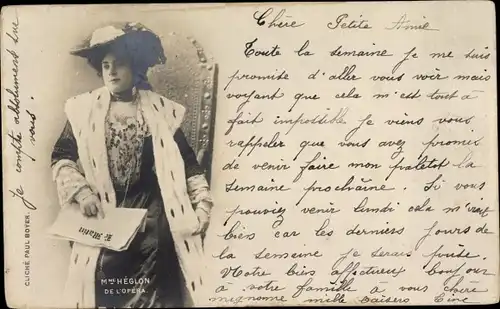 Chère Petite Amie
Toute la semaine je me suis
promise d'aller vous voir mais
voyant que cela m'est tout à
fait impossible je viens vous
rappeler que vous avez promis
de venir faire mon paletot la
semaine prochaine. Si vous
pouviez venir lundi cela m'irait
bien car les derniers jours de
la semaine je serais prise.
Notre bien affectueux bonjour
à votre famille à vous chère
mignonne mille baisers
Je compte absolument sur
vous.
Le Matin
CLICHÉ PAUL BOYER.
MME HÉGLON
DE L'OPÉRA